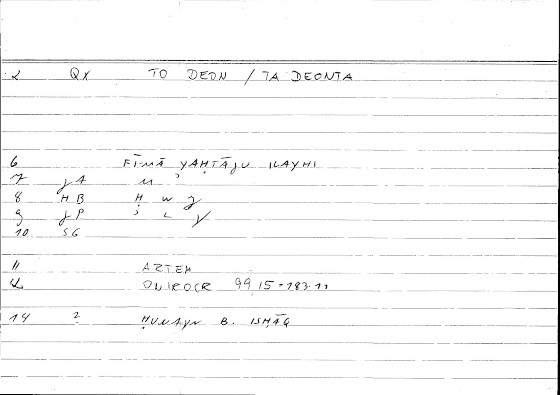 2 QX TO DEON / TA DEONTA
6 FĪMĀ YAḤTĀJU ILAYHI
7 JA M ʾ
8 HB Ḥ W J
9 JP
10 SG
11 ARTEM
12 ONIROCR 99,15 = 183.11
14 2 ḤUNAYN B. ISḤĀQ